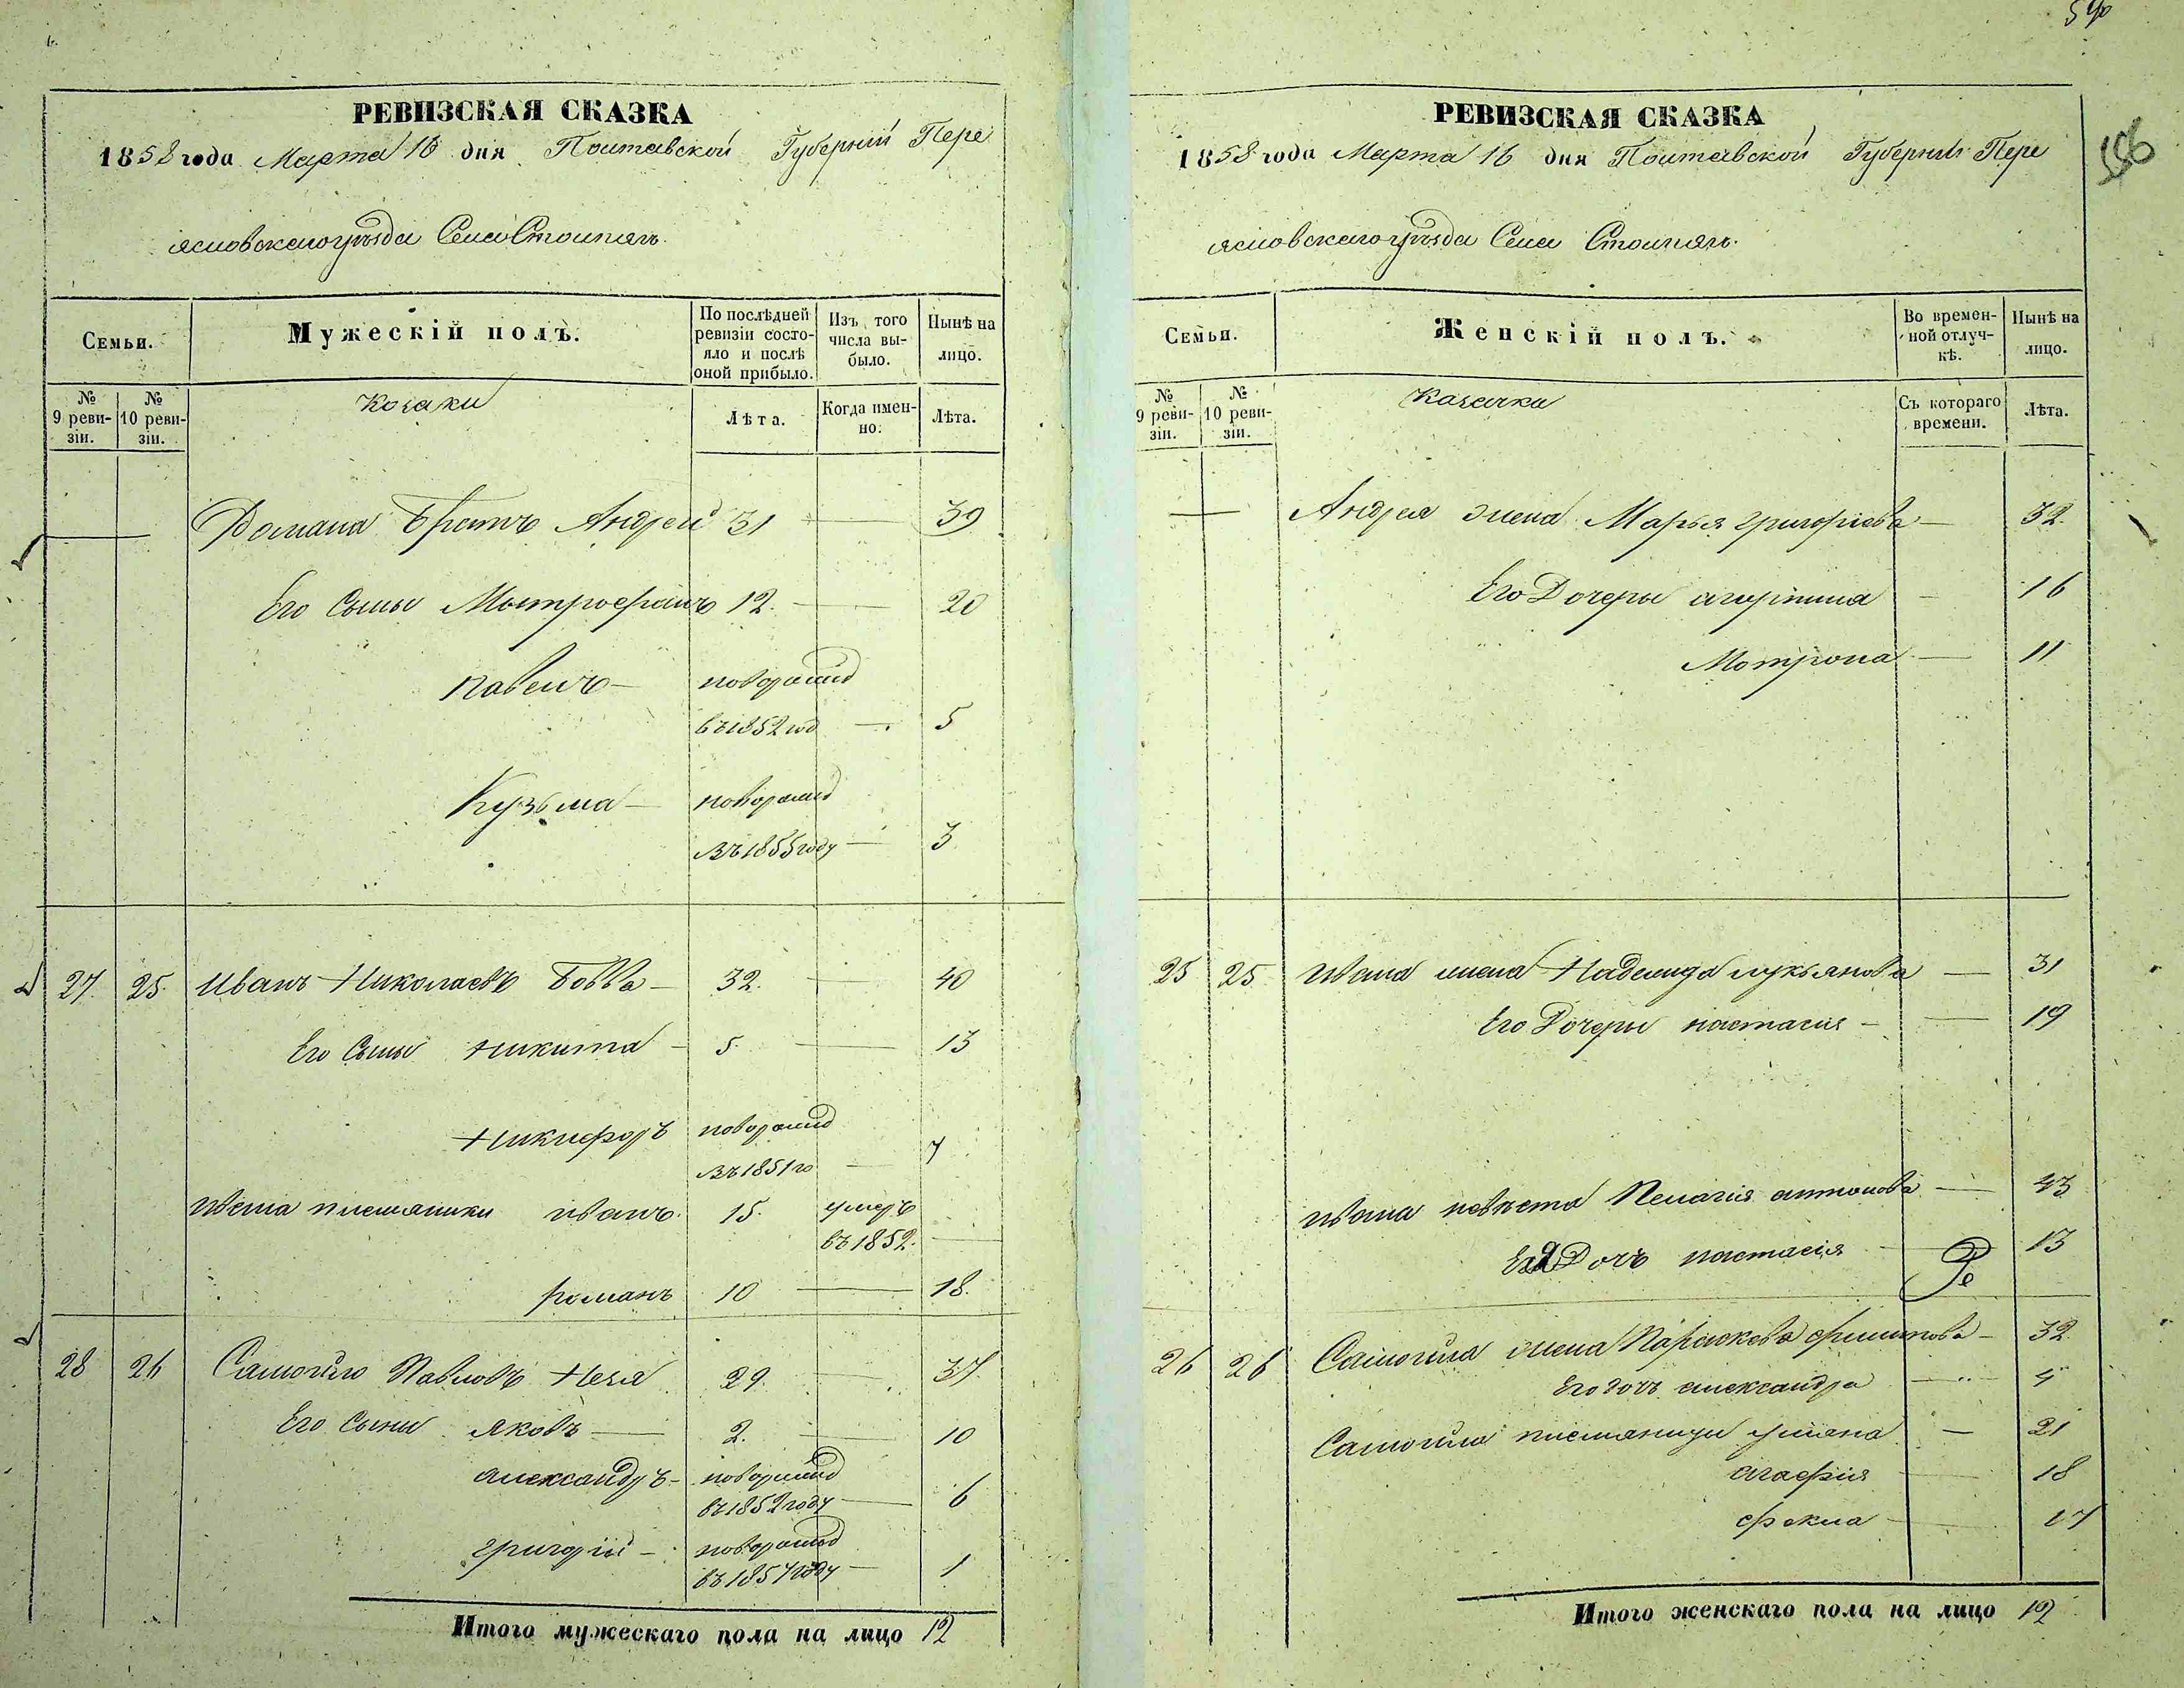 590
РЕВИЗСКАЯ СКАЗКА
1858 года Марта 16 дня Полтавской Губерніи Пере
яславскаго уѣзда Села Столпягъ.
Семьи.
Мужескій полъ.
По послѣдней ревизіи состо-
яло и послѣ оной прибыло.
Изъ того числа вы-
было.
Нынѣ на лицо.
№ 9 реви-
зіи.
№ 10 реви-
зіи.
Козаки
Лѣта.
Когда имен-
но.
Лѣта.
Романа Братъ Андрей 31 — 39
Его Сыны Митрофанъ 12. — 20
Павелъ — новорожд
въ 1852 год — 5
Кузьма — новорожд
въ 1855 году — 3
27. 25. Иванъ Николаевъ Бовва — 32. — 40
Его Сыны Никита — 5. — 13
Никифоръ новорожд
въ 1851 го — 7
Ивана племяники Иванъ. 15. умеръ
въ 1852. —
Романъ 10 — 18.
28 26 Самойло Павловъ Неча 29. — 37.
Его Сыны Яковъ — 2. — 10
Александръ — новорожд
въ 1852 году — 6
Григорій — новорожд
въ 1857 году — 1
Итого мужескаго пола на лицо 12
РЕВИЗСКАЯ СКАЗКА
1858 года Марта 16 дня Полтавской Губерніи Пере
яславскаго уѣзда Села Столпягъ.
Семьи.
Женскій полъ.
Во времен-
ной отлуч-
кѣ.
Нынѣ на лицо.
№ 9 реви-
зіи.
№ 10 реви-
зіи.
Казачки
Съ котораго времени.
Лѣта.
— Андрея жена Марья Григориева — 32.
Его Дочеры Агрипина — 16
Мотрона — 11
25 25 Ивана жена Надежда Лукьянова — 31
Его Дочеры Настасия — 19
Ивана невѣста Пелагия Антонова — 43
Ея Дочь Настасія — 13
26 26 Самойла жена Параскева Филипова — 32.
Его дочь Александра — 4
Самойла племяницы Уляна — 21
Агафия — 18
Фекла — 17
Итого женскаго пола на лицо 12